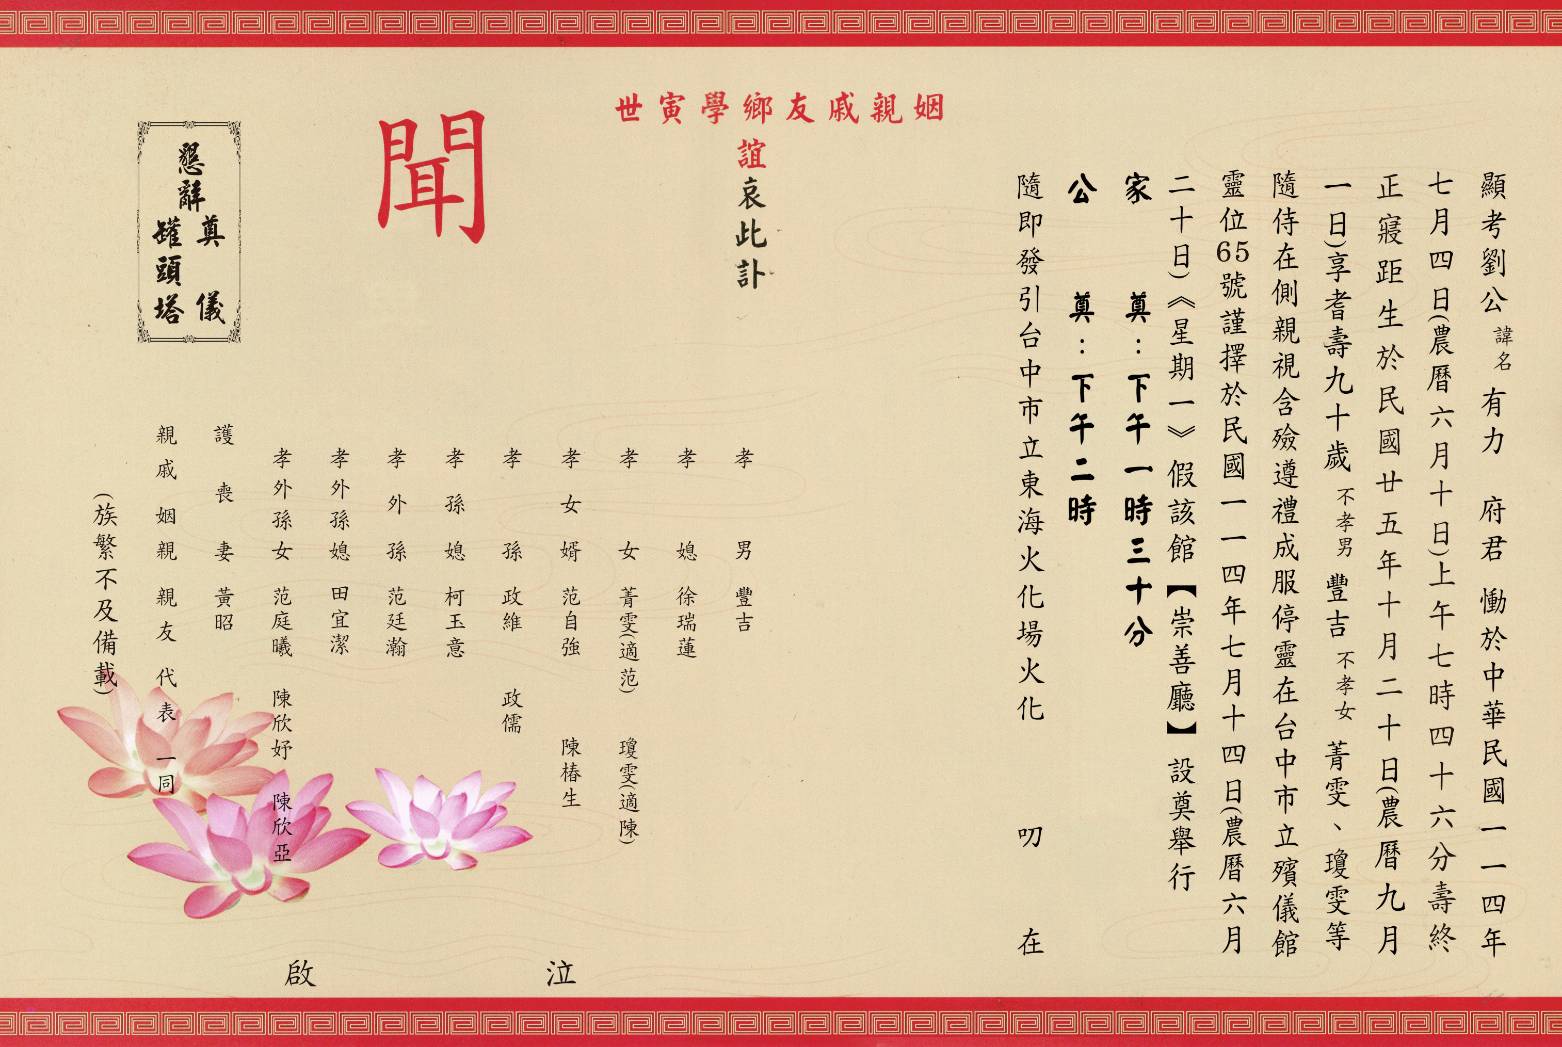 顯考劉公諱名有力 府君 慟於中華民國一一四年
七月四日(農曆六月十日)上午七時四十六分壽終
正寢距生於民國廿五年十月二十日(農曆九月
一日)享耆壽九十歲 不孝男 豐吉 不孝女 菁雯、瓊雯等
隨侍在側親視含殮遵禮成服停靈在台中市立殯儀館
靈位65號謹擇於民國一一四年七月十四日(農曆六月
二十日)《星期一》假該館【崇善廳】設奠舉行
家 奠:下午一時三十分
公 奠:下午二時
隨即發引台中市立東海火化場火化 叨 在
姻親戚友鄉學寅世
誼哀此訃
聞
孝 男 豐吉
孝 媳 徐瑞蓮
孝 女 菁雯(適范) 瓊雯(適陳)
孝女婿 范自強 陳椿生
孝 孫 政維 政儒
孝孫媳 柯玉意
孝外孫 范廷瀚
孝外孫媳 田宜潔
孝外孫女 范庭曦 陳欣妤 陳欣亞
護喪妻 黃昭
親戚姻親 親友代表 一同
(族繁不及備載)
泣 啟
懇辭
奠儀
罐頭塔